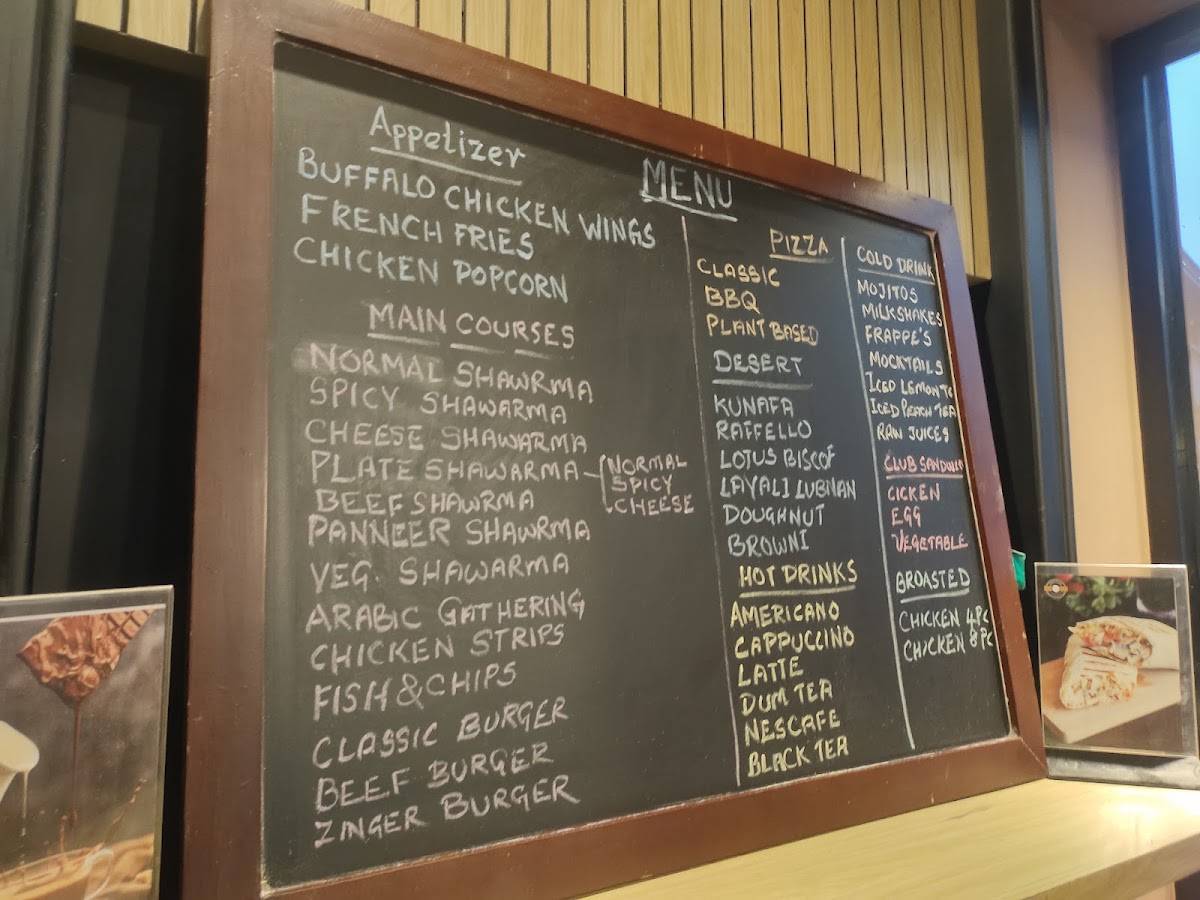 Appetizer
BUFFALO CHICKEN WINGS
FRENCH FRIES
CHICKEN POPCORN
MAIN COURSES
NORMAL SHAWRMA
SPICY SHAWARMA
CHEESE SHAWARMA
PLATE SHAWARMA
NORMAL
SPICY
CHEESE
BEEF SHAWRMA
PANNEER SHAWRMA
VEG. SHAWARMA
ARABIC GATHERING
CHICKEN STRIPS
FISH & CHIPS
CLASSIC BURGER
BEEF BURGER
ZINGER BURGER
MENU
PIZZA
CLASSIC
BBQ
PLANT BASED
DESERT
KUNAFA
RAFFELLO
LOTUS BISCOF
LAYALI LUBNAN
DOUGHNUT
BROWNI
HOT DRINKS
AMERICANO
CAPPUCCINO
LATTE
DUM TEA
NESCAFE
BLACK TEA
COLD DRINK
MOJITOS
MILKSHAKES
FRAPPE'S
MOCKTAILS
ICED LEMON TE
ICED PEACH TEA
RAW JUICES
CLUB SANDWICH
CICKEN
EGG
VEGETABLE
BROASTED
CHICKEN 4 PC
CHICKEN 8 PC